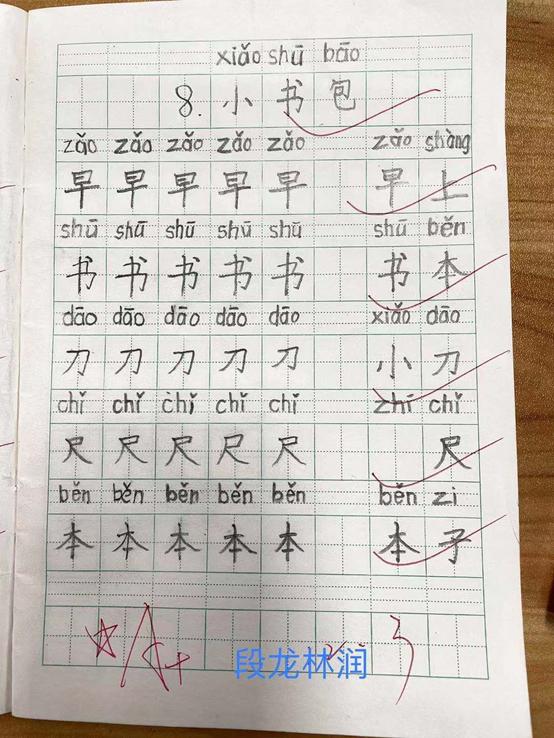 xiǎo shū bāo
8. 小书包
zǎo zǎo zǎo zǎo zǎo zǎo shàng
早 早 早 早 早 早 上
shū shū shū shū shū shū běn
书 书 书 书 书 书 本
dāo dāo dāo dāo dāo xiǎo dāo
刀 刀 刀 刀 刀 小 刀
chǐ chǐ chǐ chǐ chǐ zhí chǐ
尺 尺 尺 尺 尺 尺
běn běn běn běn běn běn zi
本 本 本 本 本 本 子
A+ 段龙林润 3